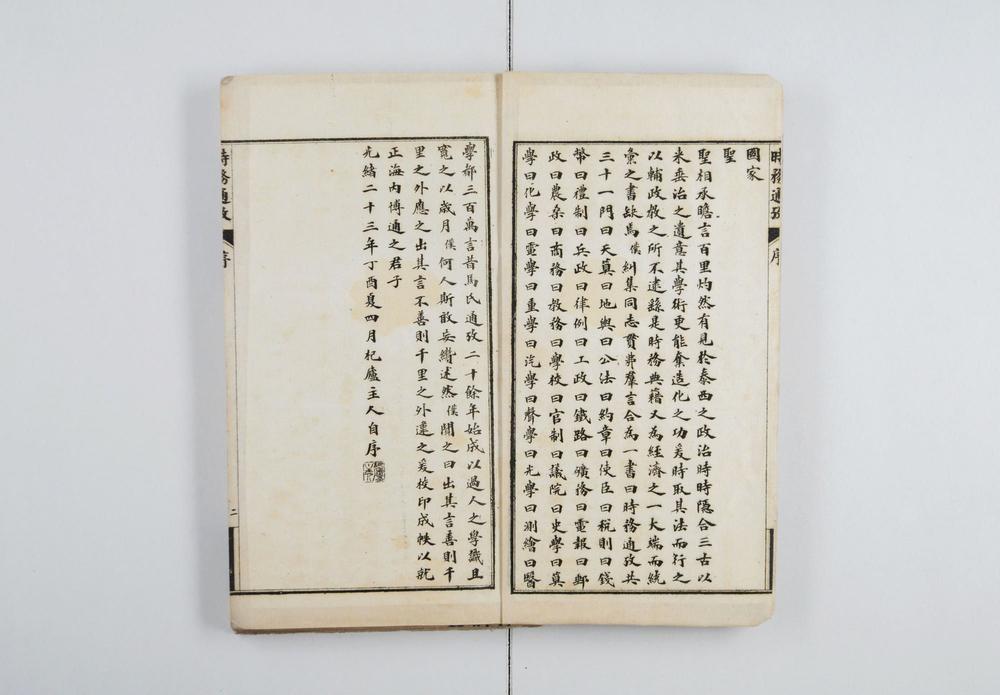 時務通攷
序
國家
聖
聖相承瞻言百里灼然有見於泰西之政治時時隱合三古以
來垂治之遺意其學術更能奪造化之功爰時取其法而行之
以輔政教之所不逮繇是時務典籍又為經濟之一大端而統
彙之書缺焉僕糾集同志貫弗羣言合為一書曰時務通攷共
三十一門曰天算曰地輿曰公法曰約章曰使臣曰稅則曰錢
幣曰禮制曰兵政曰律例曰工政曰鐵路曰礦務曰電報曰郵
政曰農桑曰商務曰教務曰學校曰官制曰議院曰史學曰算
學曰化學曰電學曰重學曰汽學曰聲學曰光學曰測繪曰醫
學都三百萬言昔馬氏通攷二十餘年始成以過人之學識且
寬之以歲月僕何人斯敢妄纘述然僕聞之曰出其言善則千
里之外應之出其言不善則千里之外違之爰校印成帙以就
正海內博通之君子
光緒二十三年丁酉夏四月杞廬主人自序
時務通攷
序
二